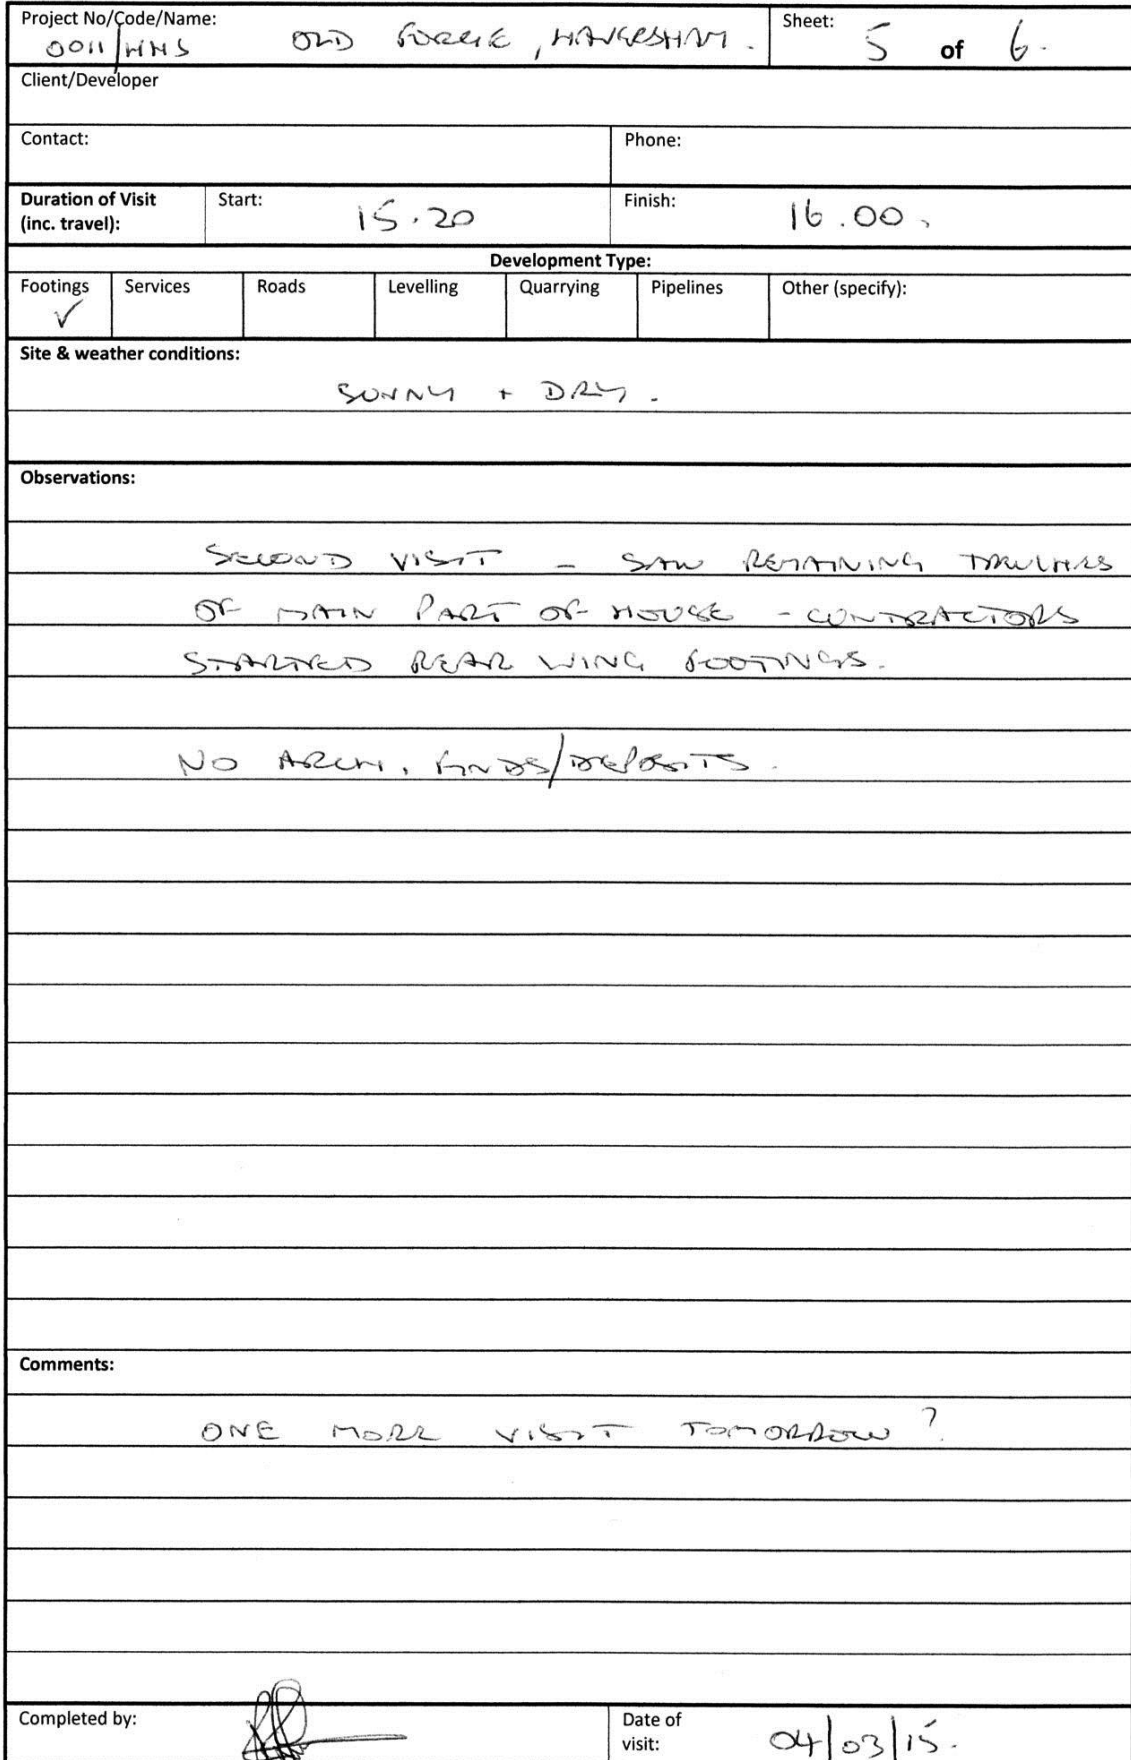 Project No/Code/Name: Sheet:
0011/HNS OLD FORGE, HAVERSHAM. 5 of 6.
Client/Developer
Contact: Phone:
Duration of Visit Start: 15.20 Finish: 16.00.
(inc. travel):
Development Type:
Footings Services Roads Levelling Quarrying Pipelines Other (specify):
✓
Site & weather conditions:
SUNNY + DRY.
Observations:
SECOND VISIT - SAW REMAINING TRENCHES
OF MAIN PART OF HOUSE - CONTRACTORS
STARTED REAR WING FOOTINGS.
NO ARCH. FINDS/DEPOSITS.
Comments:
ONE MORE VISIT TOMORROW?
Completed by: Date of
visit: 04/03/15.